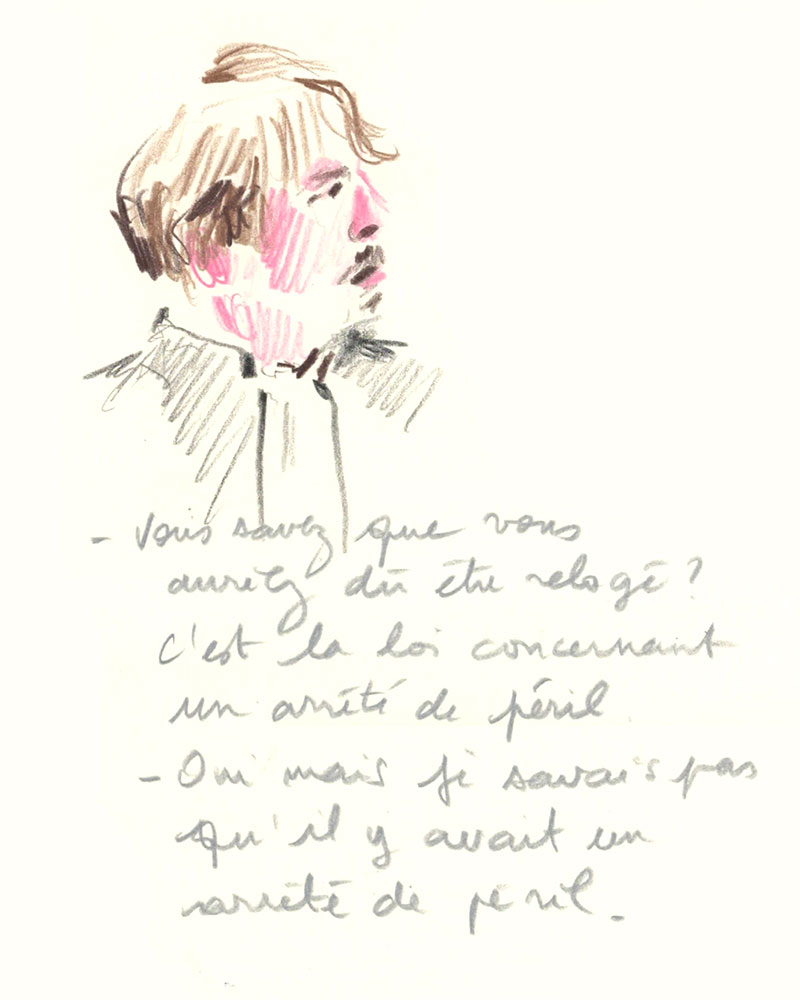 - Vous savez que vous
auriez dû être relogé ?
C'est la loi concernant
un arrêté de péril
- Oui mais je savais pas
qu'il y avait un
arrêté de péril.